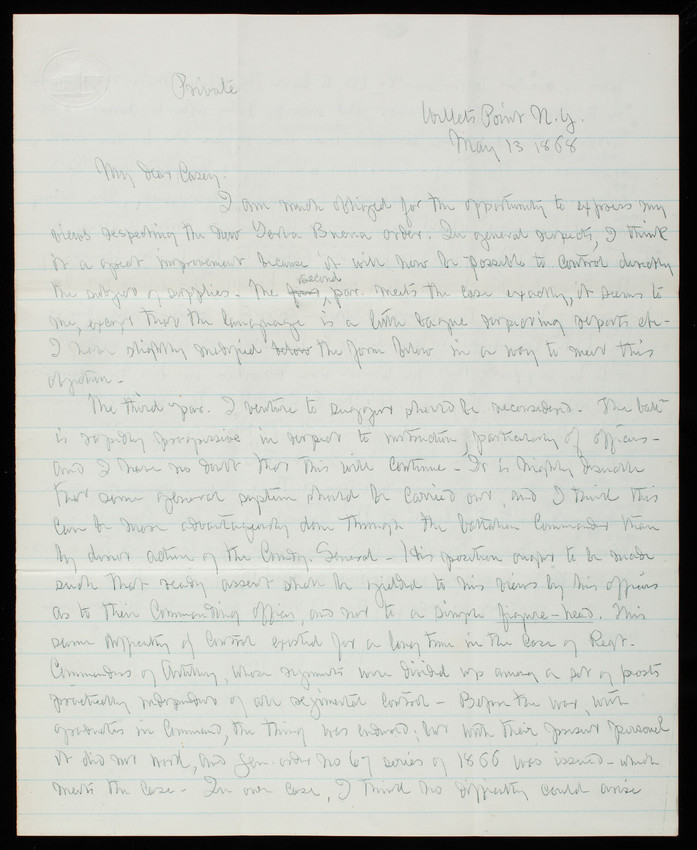 Private
Willets Point N.Y.
May 13 1868
My dear Casey.
I am much obliged for the opportunity to express my
views respecting the new Yerba Buena order. In general respects, I think
it a great improvement because it will now be possible to control directly
the subject of supplies. The second par. meets the case exactly, it seems to
me, except that the language is a little vague respecting reports etc -
I have slightly modified below the form below in a way to meet this
objection -
The third par. I venture to suggest should be reconsidered. The batt
is rapidly progressive in respect to instruction, particularly of officers -
and I have no doubt that this will continue - It is highly desirable
that some general system should be carried out, and I think this
can be more advantageously done through the battalion Commander than
by direct action of the Comdg. General - His position ought to be made
such that ready assent shall be yielded to his views by his officers
as to their Commanding officer, and not to a simple figure-head. This
same difficulty of Control existed for a long time in the case of Regt.
Commanders of Artillery, whose regiments were divided up among a set of posts
practically independent of all regimental control - Before the war, with
graduates in Command, the thing was endured; but with their present personnel
it did not work, and Gen. order No 67 series of 1866 was issued - which
meets the case - In our case, I think no difficulty could arise